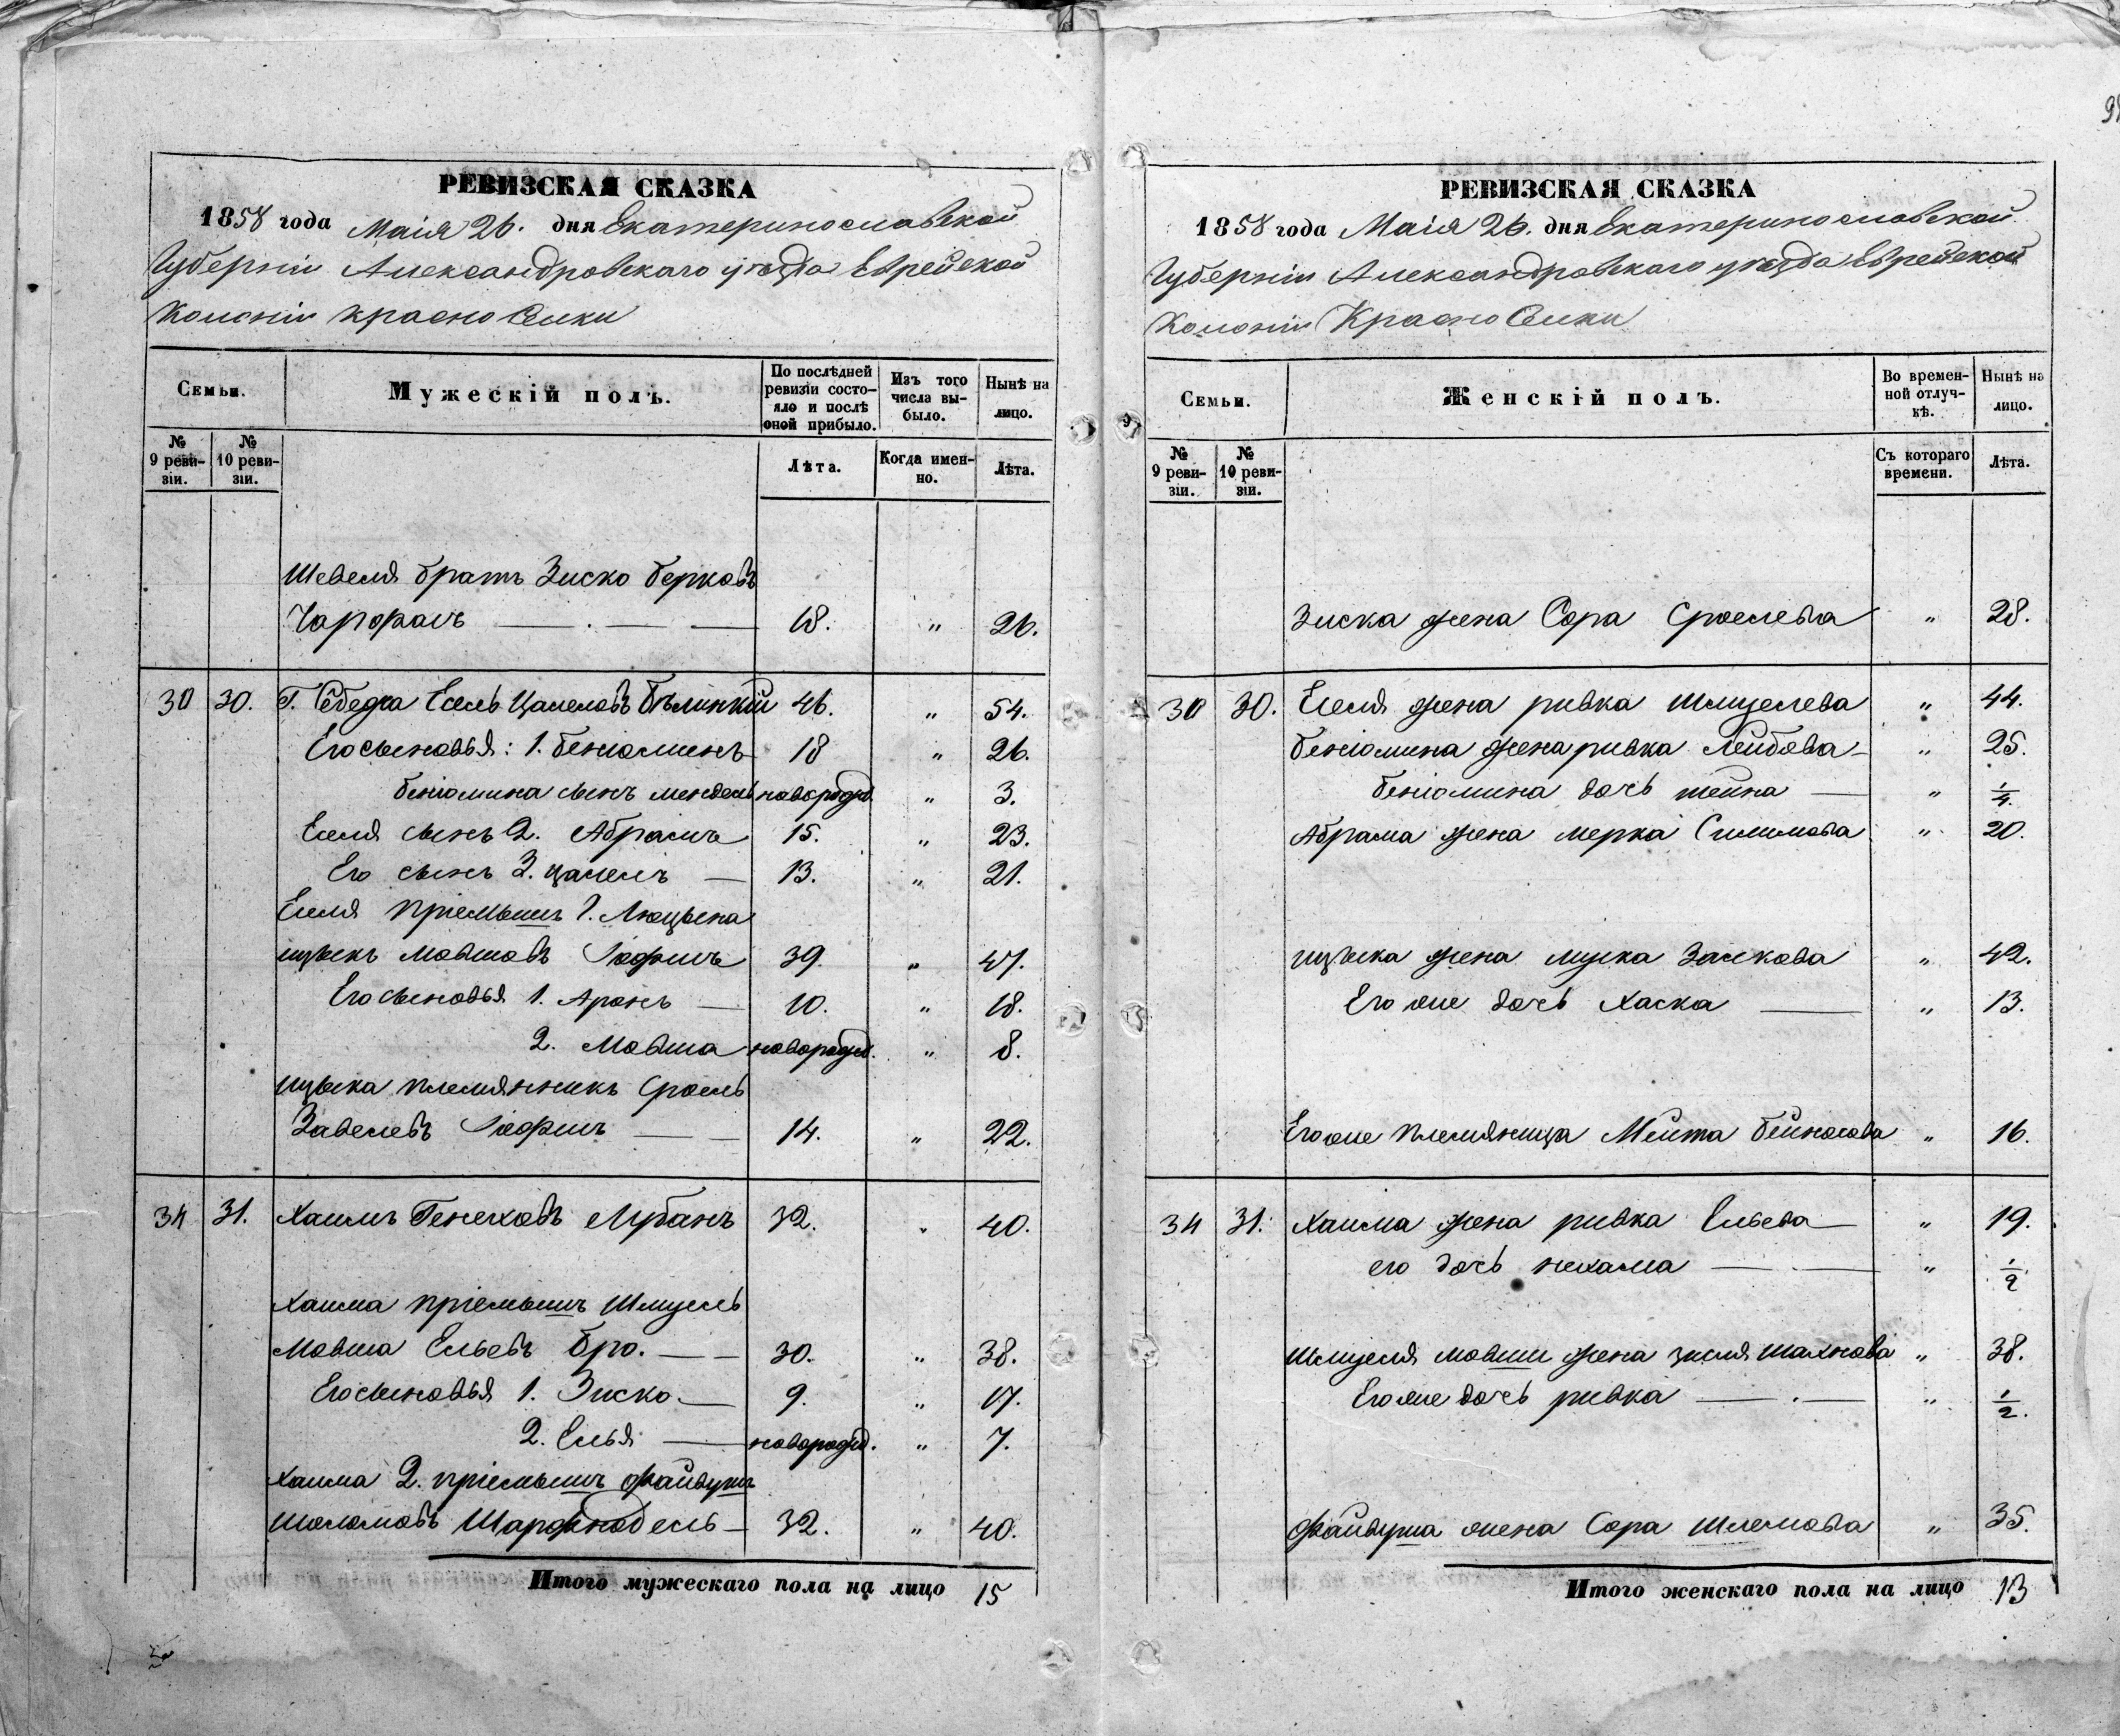 РЕВИЗСКАЯ СКАЗКА
1858 года Маія 26. дня Екатеринославской
Губерніи Александровскаго уѣзда Еврейской
Колоніи Красноселки
Семьи.
Мужескій полъ.
По послѣдней ревизіи состояло и послѣ оной прибыло.
Изъ того числа выбыло.
Нынѣ на лицо.
№ 9 ревизіи.
№ 10 ревизіи.
Лѣта.
Когда именно.
Лѣта.
Шевеля братъ Зиско Берковъ
18. " 26.
30 30. Г. Есель Цалеловъ Бѣлинкій 46. " 54.
Его сыновья: 1. Беніоминъ 18 " 26.
Беніомина сынъ Мендель новорожд. " 3.
Еселя сынъ 2. Абрамъ 15. " 23.
Его сынъ 3. Цалелъ — 13. " 21.
Еселя пріемышъ Г. Люцына
Ицыкъ Мовшовъ 39. " 47.
Его сыновья 1. Аронъ — 10. " 18.
2. Мовша новорожд. " 8.
Ицыка племянникъ Сроель
Завелевъ — — 14. " 22.
34 31. Хаимъ Генеховъ Лубанъ 32. " 40.
Хаима пріемышъ Шмуель
Мовша Ельевъ Бро. — — 30. " 38.
Его сыновья 1. Зиско — 9. " 17.
2. Елья — новорожд. " 7.
Хаима 2. пріемышъ Файвушъ
Шоломовъ 32. " 40.
Итого мужескаго пола на лицо 15
РЕВИЗСКАЯ СКАЗКА
1858 года Маія 26. дня Екатеринославской
Губерніи Александровскаго уѣзда Еврейской
Колоніи Красноселки
Семьи.
Женскій полъ.
Во временной отлучкѣ.
Нынѣ на лицо.
№ 9 ревизіи.
№ 10 ревизіи.
Съ котораго времени.
Лѣта.
Зиска жена Сора Сроелева " 28.
30 30. Еселя жена Ривка Шмуелева " 44.
Беніомина жена Ривка Лейбова " 25.
Беніомина дочь Шейна — " 1/4.
Абрама жена Мерка " 20.
Ицыка жена Муска " 42.
Его же дочь Хаска — " 13.
Его же племяница Мейта " 16.
34 31. Хаима жена Ривка Ельева — " 19.
его дочь Нехама — . — " 1/2
Шмуеля Мовши жена Шахнова " 38.
Его же дочь Ривка — . — " 1/2.
Файвуша жена Сора Шлемова " 35.
Итого женскаго пола на лицо 13